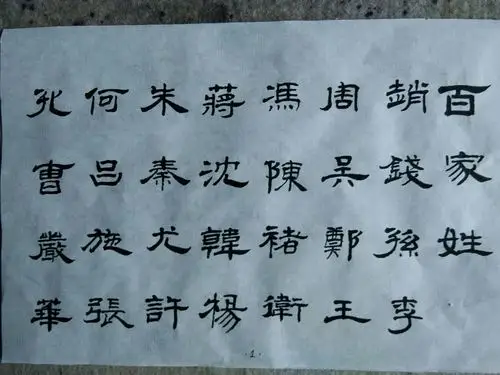 百家姓
趙錢孫李
周吳鄭王
馮陳褚衛
蔣沈韓楊
朱秦尤許
何呂施張
孔曹嚴華
·1·